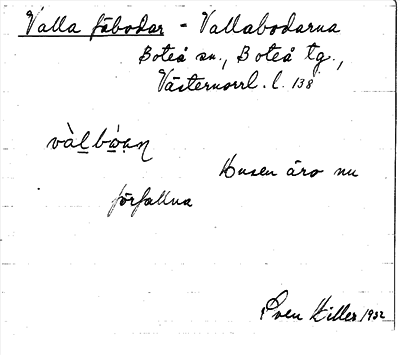 Valla fäbodar - Vallabodarna
Boteå sn., Boteå tg.,
Västernorrl. l. 138
Husen äro nu
förfallna
Sven Hiller 1932